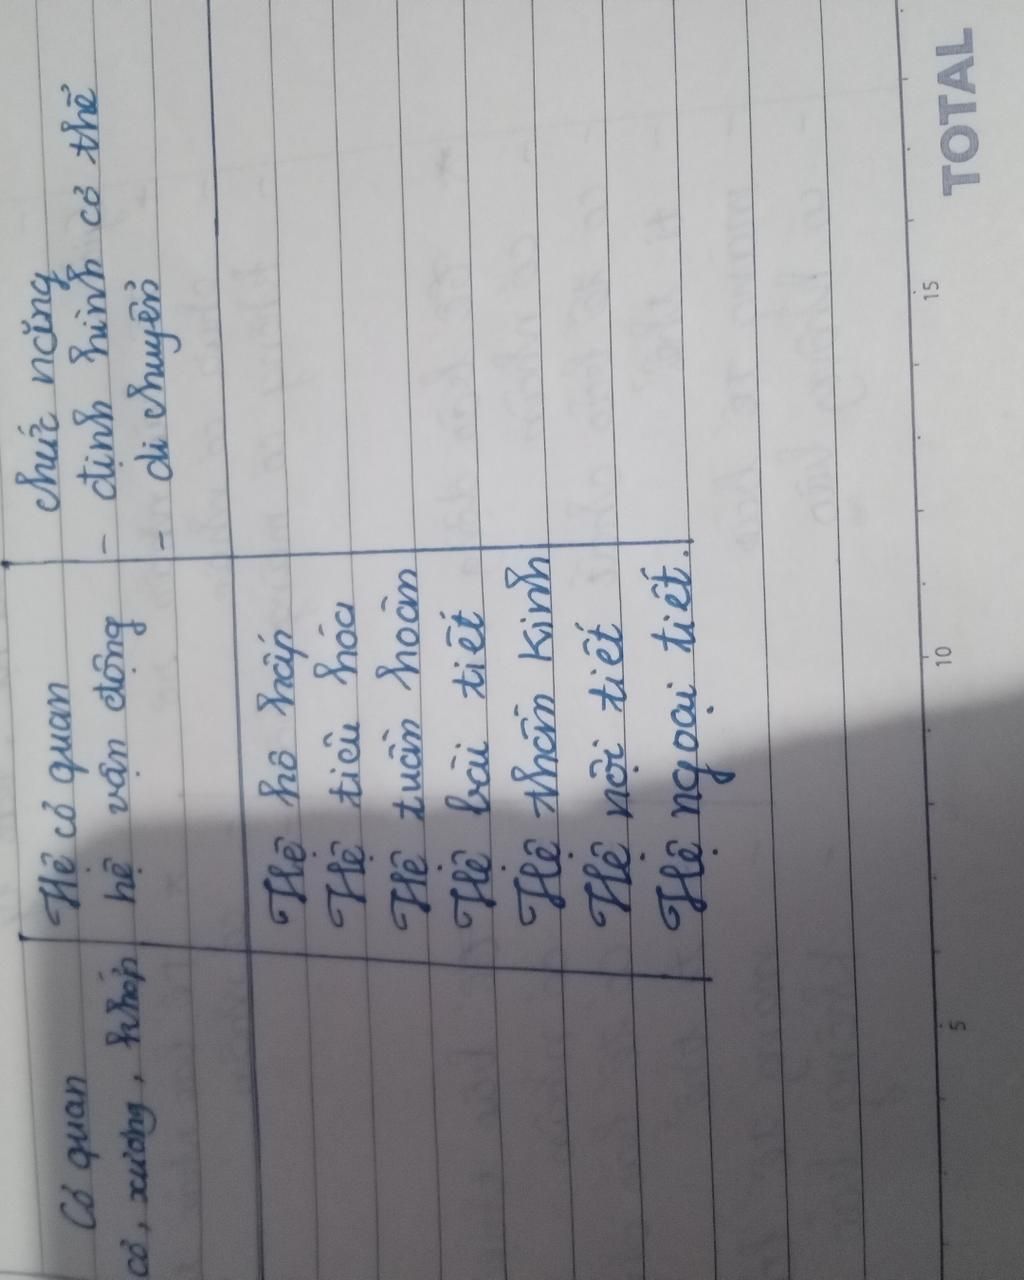 Cơ quan | Hệ cơ quan | chức năng
cơ, xương, khớp | hệ vận động | - định hình cơ thể
- di chuyển
Hệ hô hấp
Hệ tiêu hóa
Hệ tuần hoàn
Hệ bài tiết
Hệ thần kinh
Hệ nội tiết
Hệ ngoại tiết.
5 10 15
TOTAL